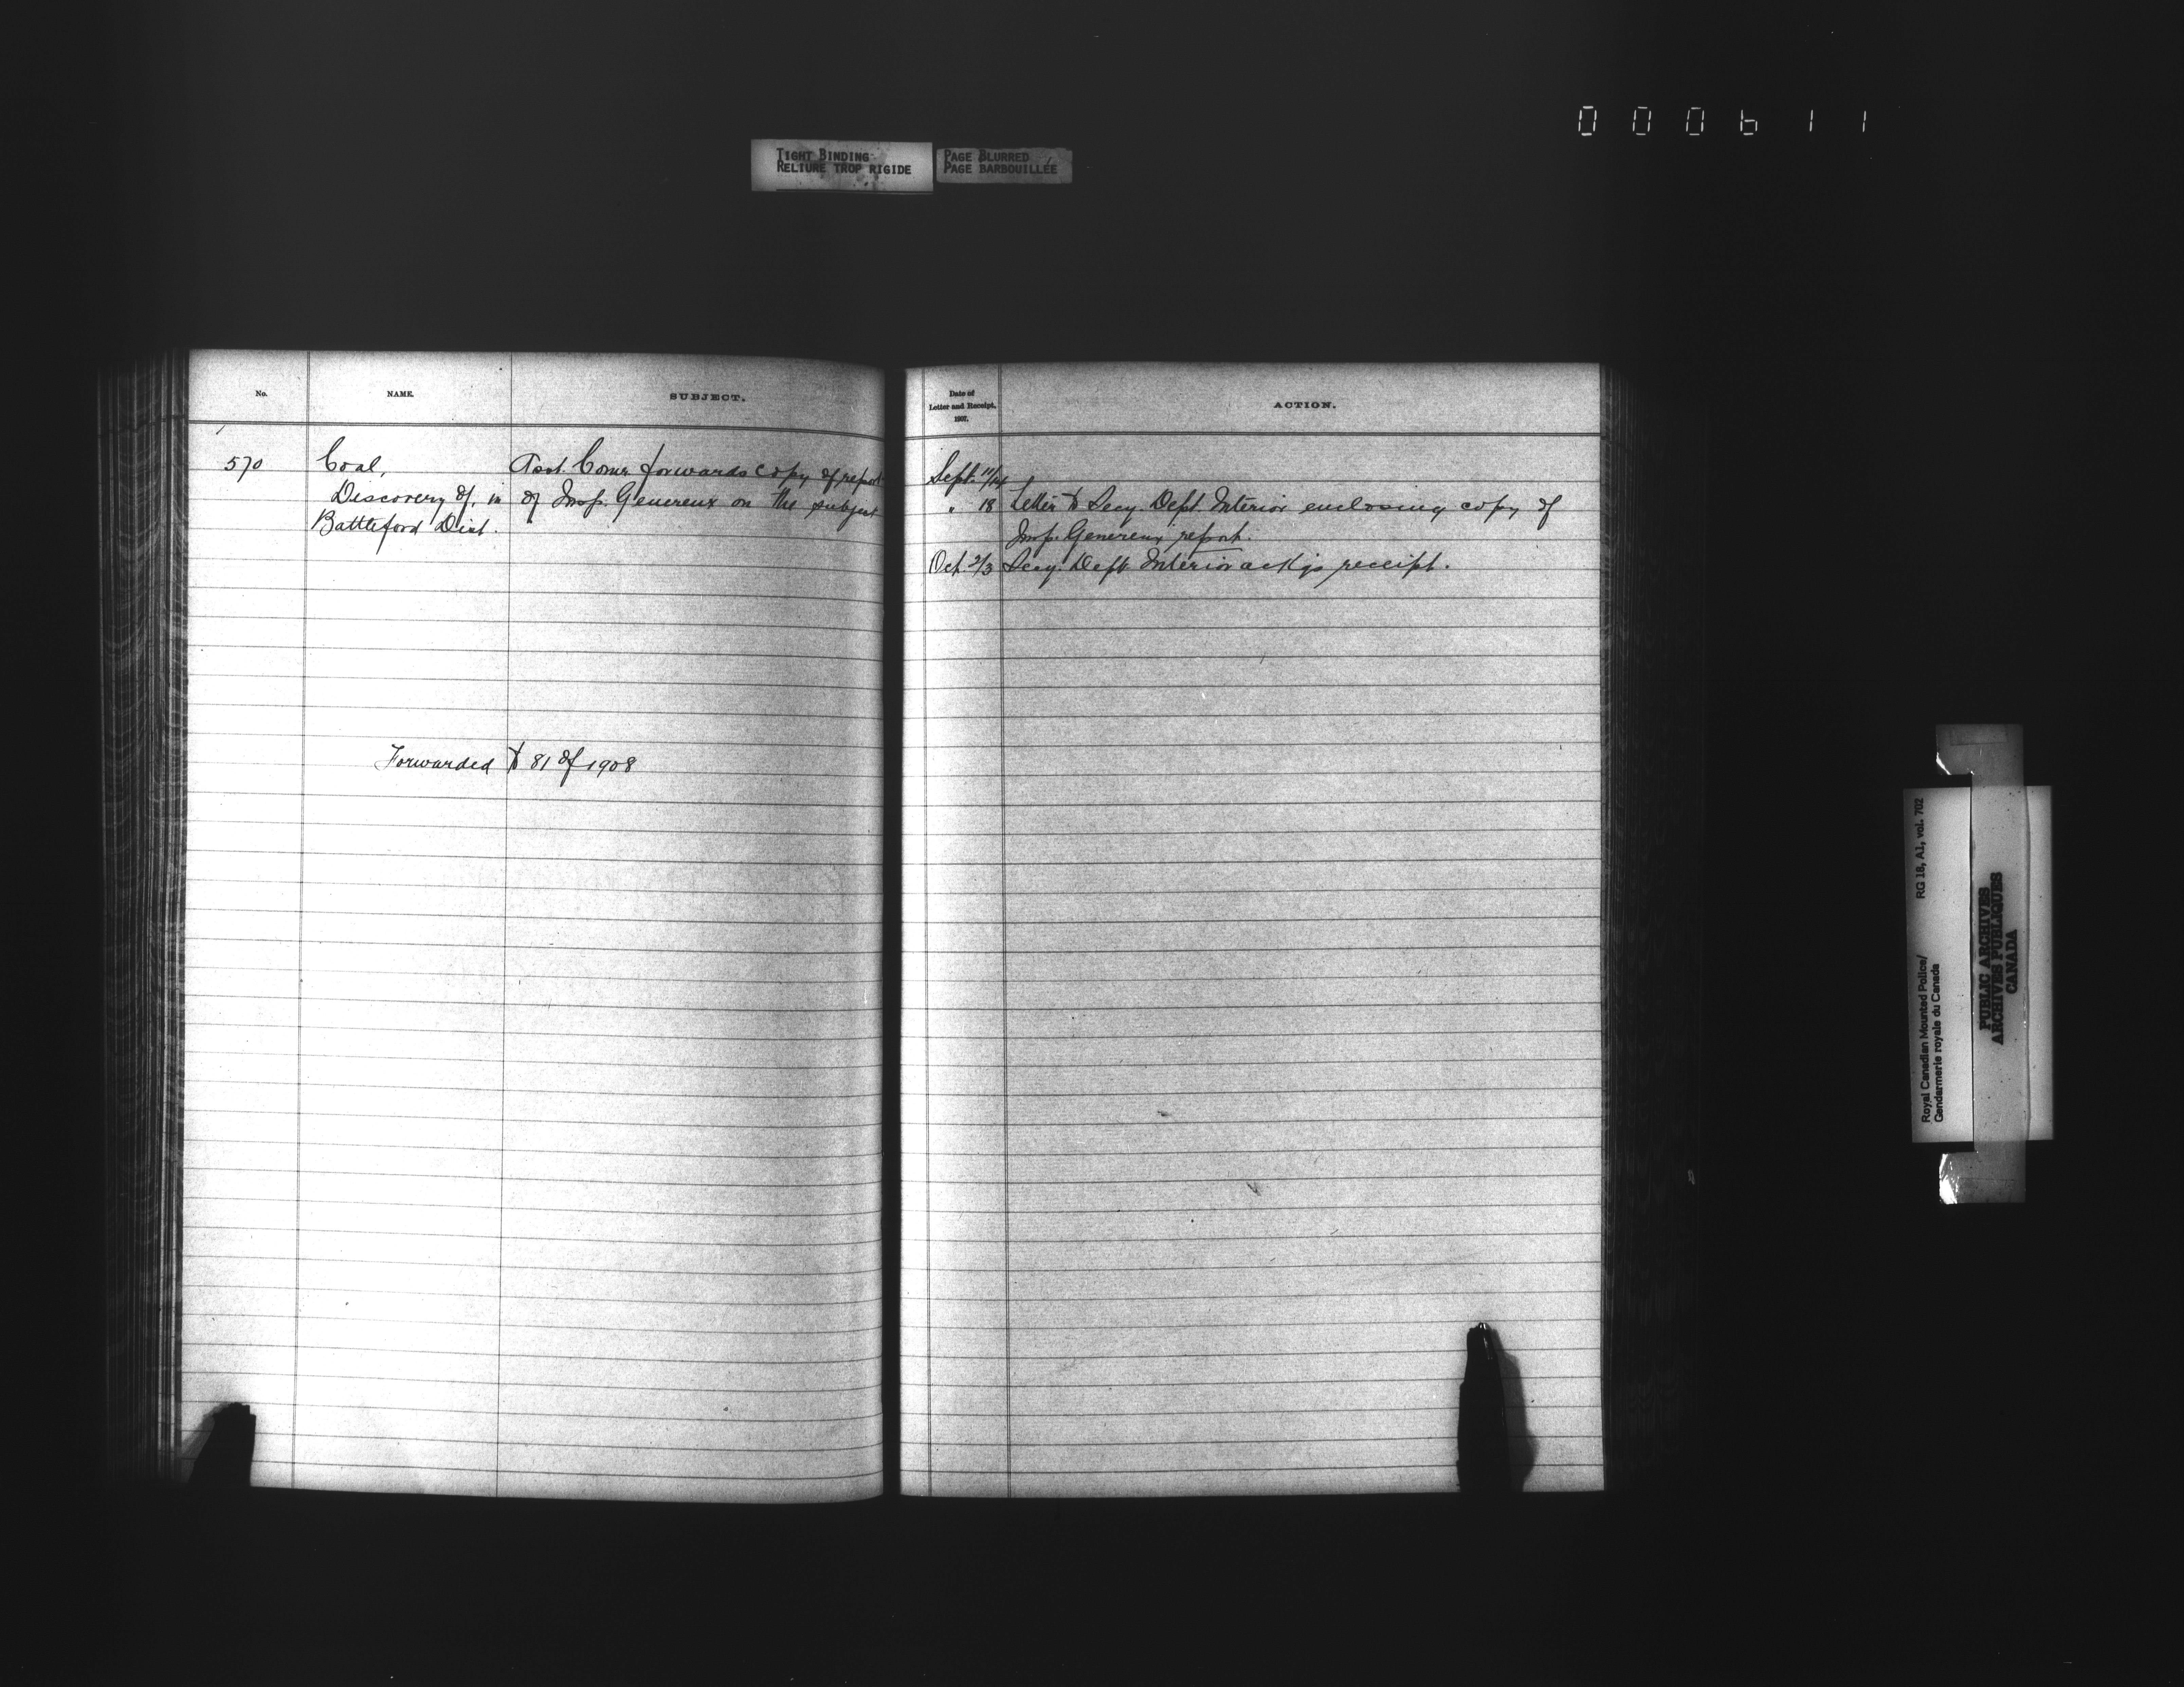 000611
TIGHT BINDING
RELIURE TROP RIGIDE
PAGE BLURRED
PAGE BARBOUILLÉE
No.
NAME.
SUBJECT.
570
Coal,
Discovery of, in
Battleford Dist.
Asst. Comr forwards copy of report
of Insp. Genereux on the subject
Forwarded to 81 of 1908
Date of
Letter and Receipt,
1907.
ACTION.
Sept. 11/14
" 18 Letter to Secy. Dept. Interior enclosing copy of
Insp. Genereux report.
Oct. 2/3 Secy. Dept. Interior ackgs receipt.
Royal Canadian Mounted Police/
Gendarmerie royale du Canada
RG 18, A1, vol. 702
PUBLIC ARCHIVES
ARCHIVES PUBLIQUES
CANADA